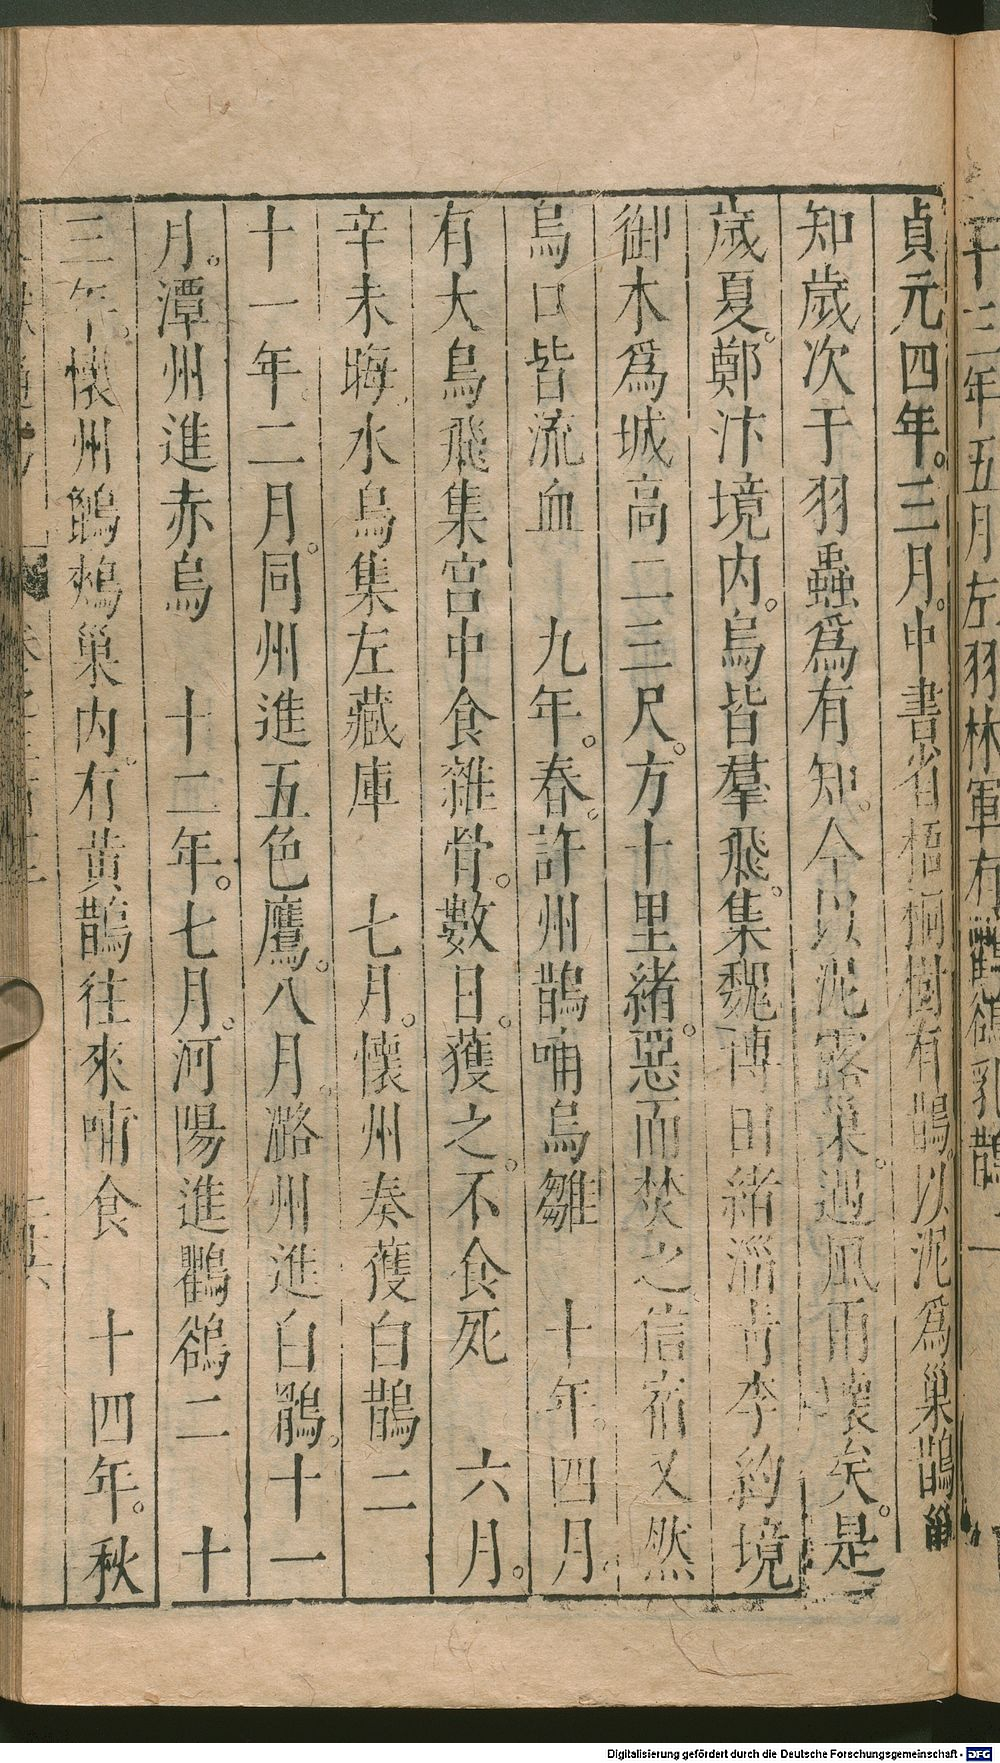 十三年五月左羽林軍有鸛鵒乳鵲
貞元四年。三月。中書省梧桐樹有鵲。以泥爲巢鵲巢
知歲次于羽蟲爲有知。今以泥露巢。遇風雨壞矣。是
歲夏。鄭汴境內。烏皆羣飛。集魏博田緒淄青李納境
御木爲城高二三尺。方十里緒。惡而焚之。信宿又然
烏口皆流血　九年。春。許州鵲哺烏雛　十年。四月。
有大鳥飛集宮中食雜骨。數日。獲之。不食死　六月。
辛未晦。水烏集左藏庫　七月。懷州奏獲白鵲二
十一年。二月。同州進五色鷹。八月。潞州進白鵲。十一
月。潭州進赤烏　十二年。七月。河陽進鸜鵒二　十
三年。懷州鸕鷀巢內。有黃鵲往來哺食　十四年。秋
Digitalisierung gefördert durch die Deutsche Forschungsgemeinschaft - DFG